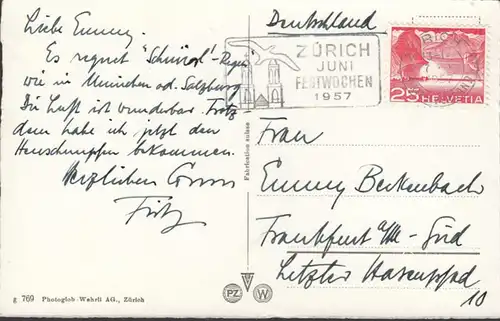 Liebe Emmy.
Es regnet "Schnürl"-Regen
wie in München od. Salzburg
Die Luft ist wunderbar. Trotz
dem habe ich jetzt den
Heuschnupfen bekommen.
Herzlichen Gruss
Fritz
g 769 Photoglob-Wehrli AG., Zürich
Fabrication suisse
PZ W
Deutschland
ZÜRICH
JUNI
FESTWOCHEN
1957
25 HELVETIA
Frau
Emmy Beckenbach
Frankfurt a/M-Süd
Letzter Hasenpfad
10